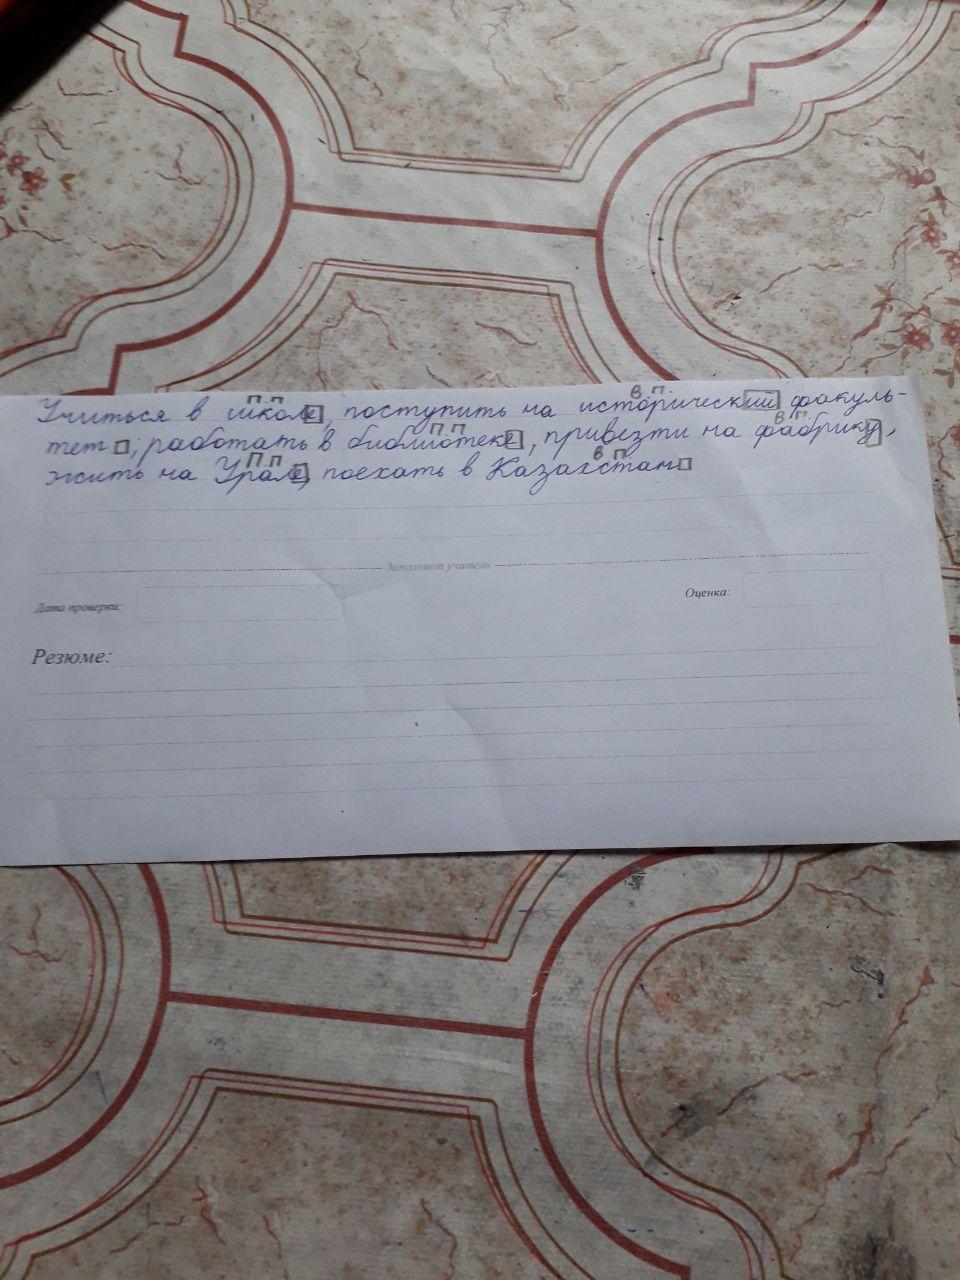 П.п В.п
Учиться в школе, поступить на исторический факуль-
П.П В.П
тет, работать в библиотеке, привезти на фабрику,
П.П В П
жить на Урале, поехать в Казахстан
Заполняет учитель
Дата проверки: Оценка:
Резюме: